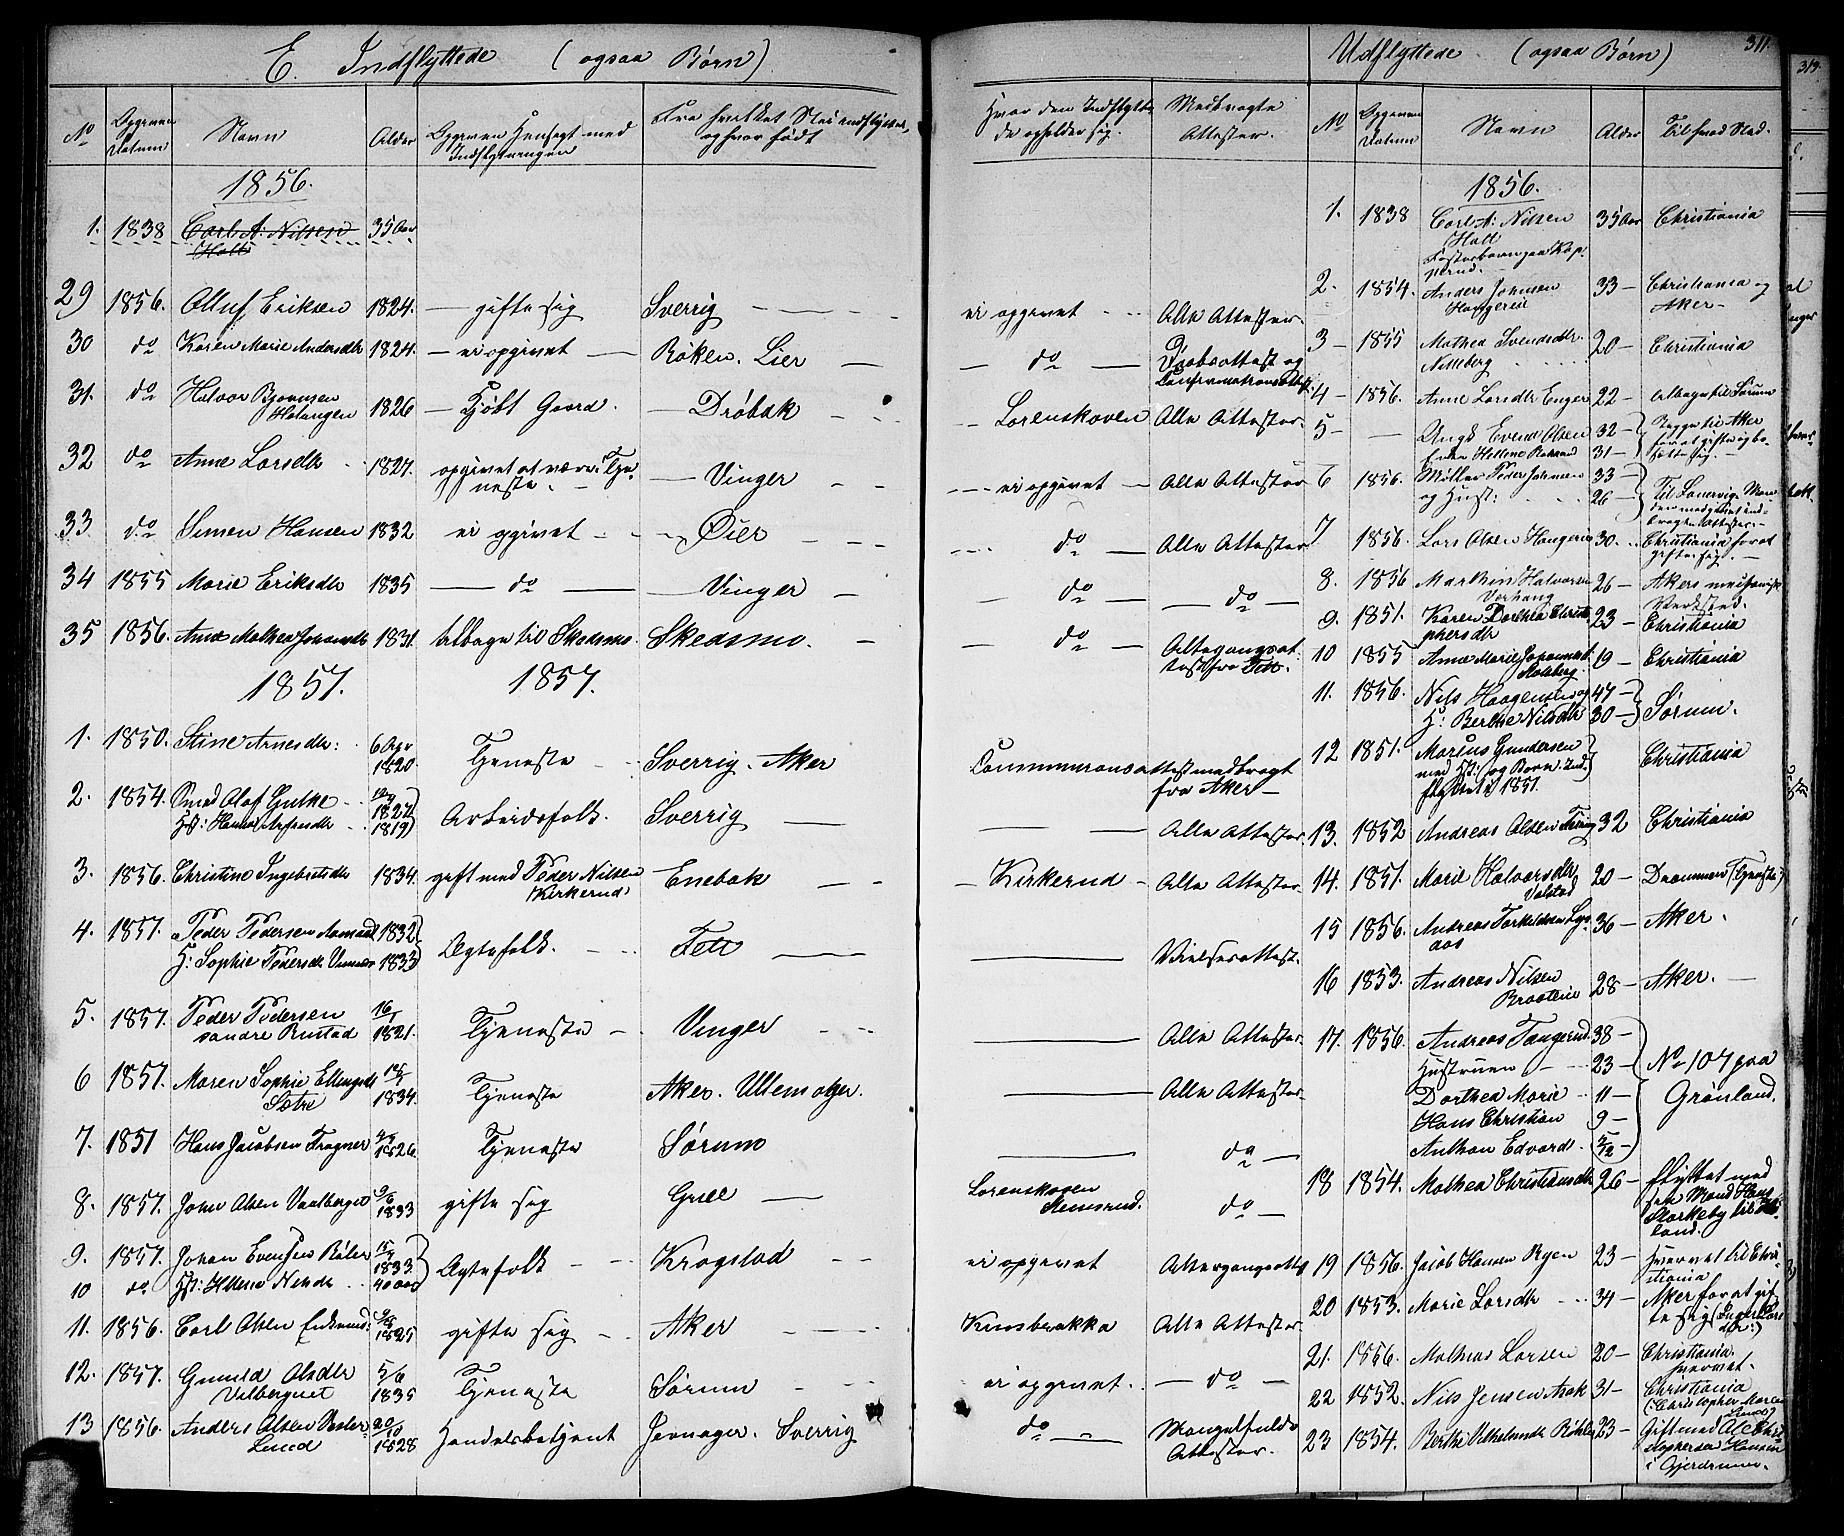 E. Indflyttede (ogsaa Børn)
No Opgiven Datum Navn Alder Opgiven Hensigt med Indflytningen Fra hvilket Sted indflyttet, og hvor født Hvor den Indflyttede opholder sig. Medbragte Attester.
1856.
1. 1838 Carl A: Nilsen Holt 35 Aar
29 1856. Olluf Eriksen 1824. — gifte sig Sverrig ei opgivet Alle Attester.
30 do Karen Marie Andersdtr 1824. — ei opgivet — Røken. Lier — do — Daabsattest og Confirmationsattest
31. do Halvor Bjørnsen Holangen 1826 — Kjøbt Gaard. — Drøbak Lorenskoven Alle Attester.
32 do Anne Larsdtr 1827. opgivet at være i Tjeneste. — Vinger — ei opgivet — Alle Attester
33 do Simen Hansen 1832 ei opgivet Øier do — Alle Attester
34 1855 Marie Eriksdtr 1835 — do — Vinger — do — do —
35 1856. Anne Mathea Johansdtr 1831. tilbage til Skedsmo. Skedsmo. — do — Altergangsattest fra Fet.
1857. 1857.
1. 1850. Stine Arnesdtr: 6 Apr 1820 Tjeneste Sverrig. Aker Communionsattest medbragt fra Aker —
2. 1854. Smed Olof Gutke 1827 Hst: 1819 Arbeidsfolk. Sverrig — Alle Attester.
3. 1856. Christine Ingebretsdtr 1834. gift med Peder Nilsen Kirkerud Enebak — Kirkerud — Alle Attester
4. 1857. Peder Pedersen 1832 H: Sophie Pedersdtr 1833 Ægtefolk. Fett — Vielsesattest.
5. 1857. Peder Pedersen søndre Rustad 16/1 1821. Tjeneste Vinger — Alle Attester
6 1857. Maren Sophie Ellingsdtr Sætre 1834. Tjeneste Aker. — Alle Attester
7. 1851 Hans Jacobsen Fragner 1826. Tjeneste Sørum — do —
8. 1857. John Olsen Vaalberget 9/6 1833 gifte sig Grue — Lorenskogen do —
9. 1857. Johan Evensen Bøler 1833.
10 do Hst: Hellene Nilsdtr 40 Aar Ægtefolk Krogstad ei opgivet Altergangsattest
11. 1856. Carl Olsen 1825 gifte sig Aker Alle Attester
12. 1857. Gunild Olsdtr Valberguet 5/6 1835 Tjeneste Sørum ei opgivet. — do —
13 1856. Anders Olsen Lund 20/10 1828 Handelsbetjent Jevnager. Sverrig do — Mangelfulde Attester.
Udflyttede (ogsaa Børn) 311.
No Opgiven Datum Navn Alder Til hvad Sted.
1856.
1. 1838 Carl A: Nilsen Holt 35 Aar Christiania
2. 1854. Anders Johnsen Hangerie 33 — Christiania og Aker —
3 — 1855 Mathea Svendsdtr Nitteberg 20 — Christiania
4 — 1856. Anne Larsdtr Enger 22 — tilbage til Sørum
5 — — Ungk Even Olsen 32 — Enke Hellene 31 — Begge til Aker for at gifte og bosætte sig. —
6 1856. Møller Peder Johnsen 33 — og Hust: 26 —
7 1856. Lars Olsen Hangerie 30. Christiania for at gifte sig. —
8. 1856 Martin Halvorsen 26 — Akers mechaniske Verksted.
9. 1851. Karen Dorthea Christophersdtr 23 — Christiania
10 1855 Anne Marie Johannesd. 19 — Christiania
11. 1856. Nils Haagensen og 47 — H: Berthe Nilsdtr 30 — Sørum.
12 1851. Marius Gundersen med Hst: og Børn. Indflyttet i 1851. Christiania
13. 1852 Andreas Olsen 32 Christiania
14. 1857. Marie Halvorsdtr Valstad 20 — Drammen (Tjeneste)
15 1856. Andreas Torkildsen 36 — Aker.
16 1853. Andreas Nilsen Braateie 28 — Aker. —
17. 1856. Andreas Tangerud 38 —
Hustruen 23 —
Dorthea Marie 11 —
Hans Christian 9 —
Anthon Edvard
No 107 paa Grønland.
18 1854. Mathea Christiansdtr 26 — flyttet med sin Mand Hans
19 1856. Jacob Hansen Ryen 23 — hvervet til Christiania
20 1853. Marie Larsdtr 34 — Aker for at gifte sig
21. 1856. Mathias Larsen 20 — Christiania hvervet.
22 1852. Nils Jensen Aask 31 — Christiania (Christopher
23 1854. Berthe Vilhelmsdtr 23 — Gift med Ole Christophersen i Gjerdrum.
313.